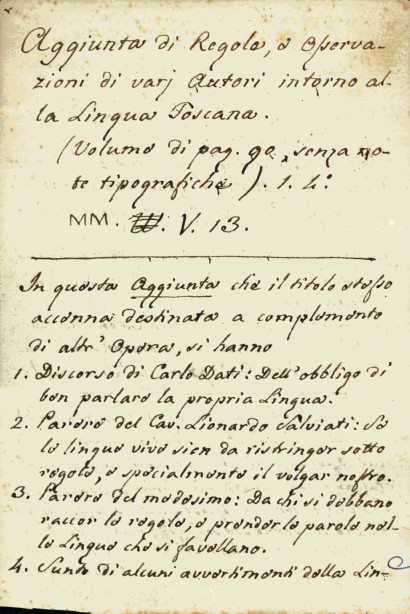 Aggiunta di Regole, e Osserva-
zioni di varj Autori intorno al-
la Lingua Toscana.
(Volume di pag. 90, senza no-
te tipografiche). 1. 4.º
MM. V. 13.
In questa Aggiunta che il titolo stesso
accenna destinata a complemento
di altr' Opera, si hanno
1. Discorso di Carlo Dati: Dell'obbligo di
ben parlare la propria Lingua.
2. Parere del Cav. Lionardo Salviati: Se
le lingue vive sien da ristringer sotto
regole, e specialmente il volgar nostro.
3. Parere del medesimo: Da chi si debbano
raccor le regole, e prender le parole nel-
le Lingue che si favellano.
4. Sunto di alcuni avvertimenti della Lin-